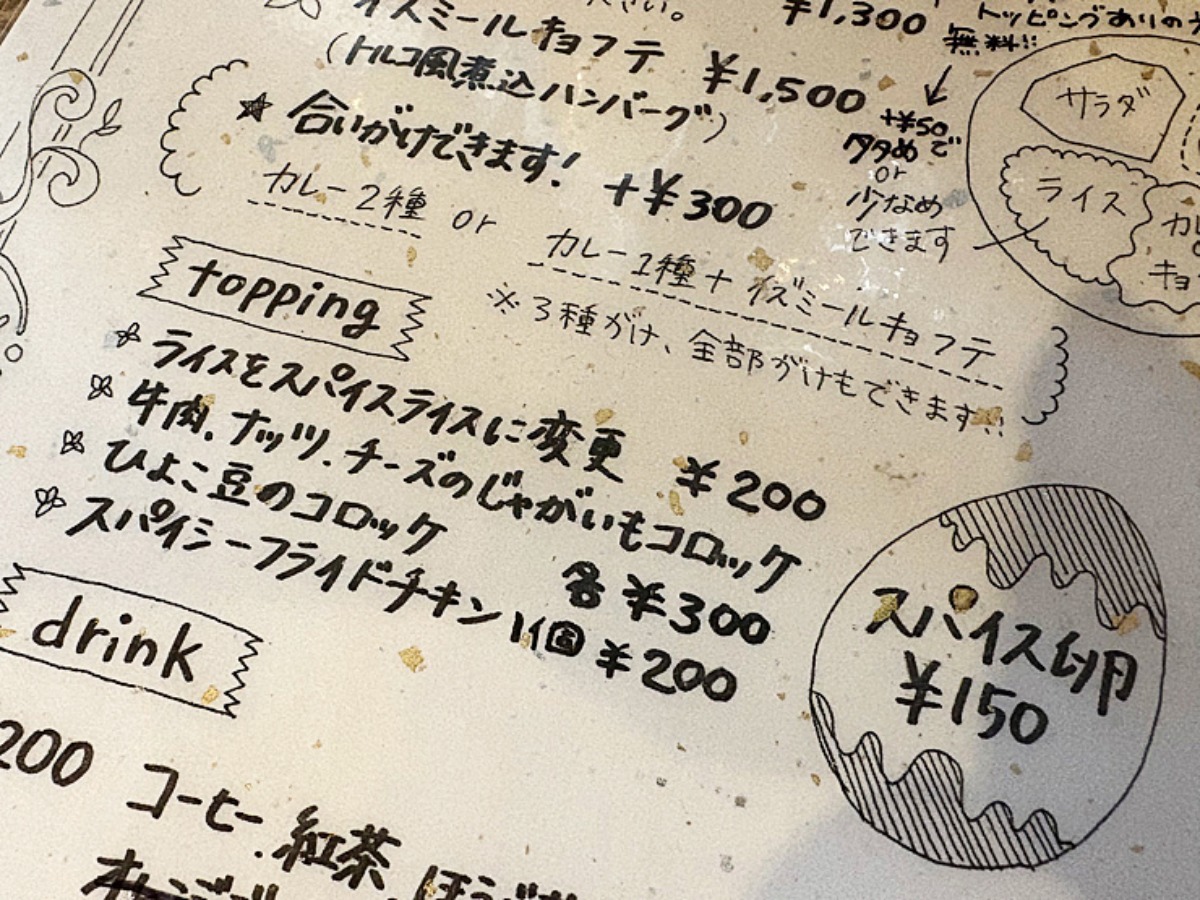 さい。
¥1,300
トッピングありの
無料!!
イズミールキョフテ ¥1,500
(トルコ風煮込ハンバーグ)
+¥50
多めで
or
少なめ
できます
サラダ
ライス
カレ
キョ
★ 合いがけできます! +¥300
カレー2種 or カレー1種+イズミールキョフテ
※3種がけ、全部がけもできます!!
topping
ライスをスパイスライスに変更 ¥200
牛肉、ナッツ、チーズのじゃがいもコロッケ
ひよこ豆のコロッケ 各¥300
スパイシーフライドチキン1個 ¥200
スパイス卵
¥150
drink
200 コーヒー、紅茶